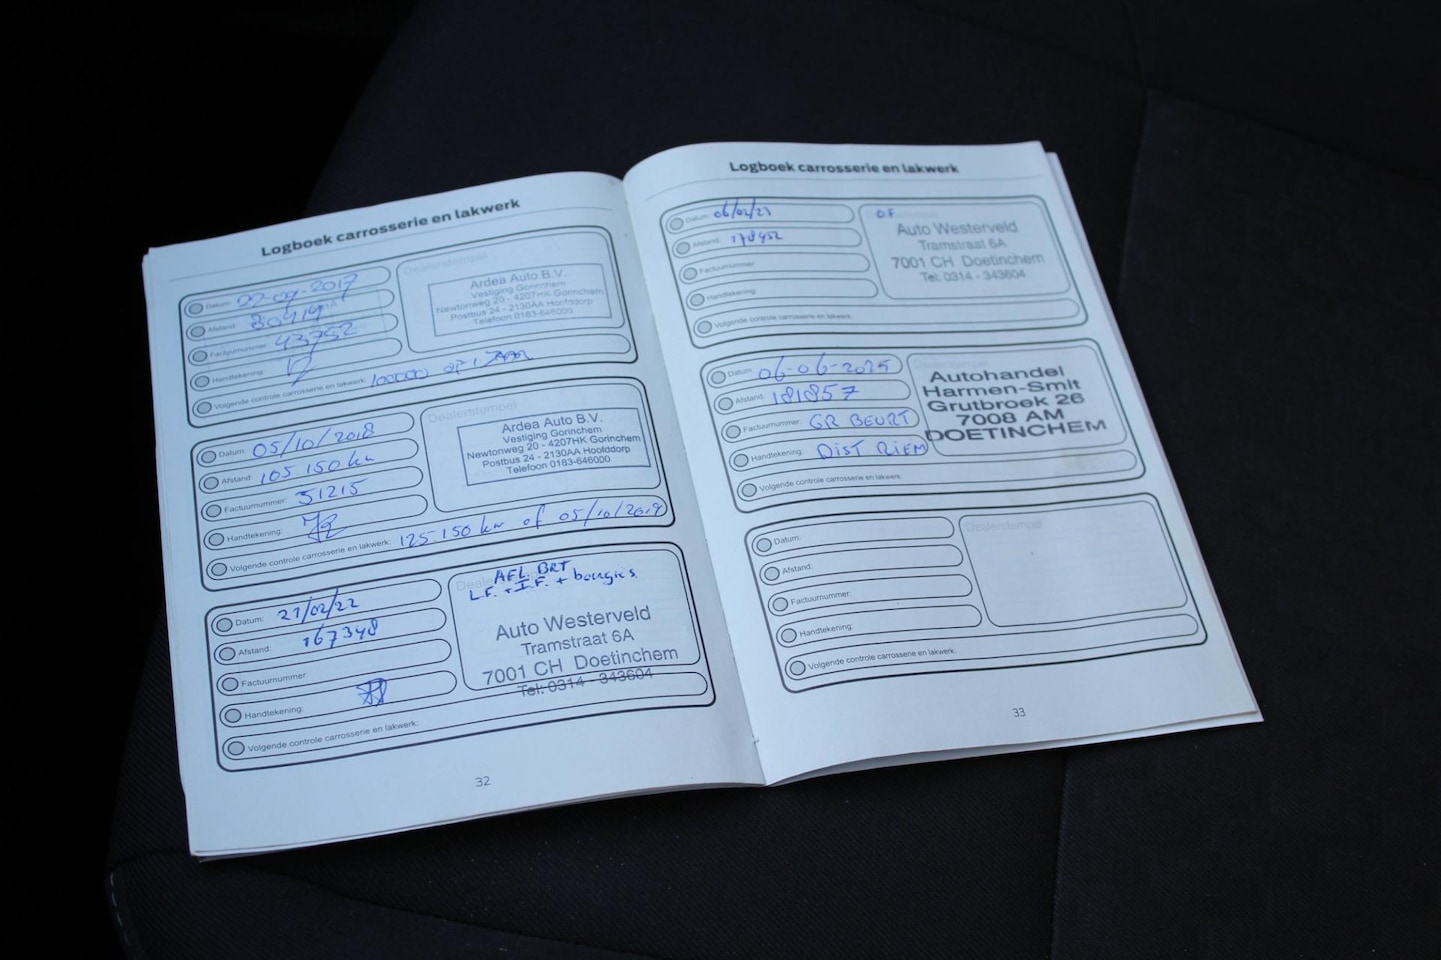 Logboek carrosserie en lakwerk
Datum: 22-09-2017
Afstand: 80414
Factuurnummer: 43752
Handtekening:
Volgende controle carrosserie en lakwerk: 100000 of 1 Jaar
Dealerstempel
Ardea Auto B.V.
Vestiging Gorinchem
Newtonweg 20 - 4207HK Gorinchem
Postbus 24 - 2130AA Hoofddorp
Telefoon 0183-646000
Datum: 05/10/2018
Afstand: 105 150 km
Factuurnummer: 51215
Handtekening:
Volgende controle carrosserie en lakwerk: 125.150 km of 05/10/2019
Dealerstempel
Ardea Auto B.V.
Vestiging Gorinchem
Newtonweg 20 - 4207HK Gorinchem
Postbus 24 - 2130AA Hoofddorp
Telefoon 0183-646000
Datum: 21/02/22
Afstand: 167348
Factuurnummer
Handtekening:
Volgende controle carrosserie en lakwerk:
AFL. BRT
L.F. + I.F. + bougies
Auto Westerveld
Tramstraat 6A
7001 CH Doetinchem
Tel: 0314 - 343604
32
Logboek carrosserie en lakwerk
Datum: 06/02/23
Afstand: 178452
Factuurnummer
Handtekening:
Volgende controle carrosserie en lakwerk:
O.F.
Auto Westerveld
Tramstraat 6A
7001 CH Doetinchem
Tel: 0314 - 343604
Datum: 06-06-2025
Afstand: 181857
Factuurnummer: GR BEURT
Handtekening: DIST RIEM
Volgende controle carrosserie en lakwerk:
Autohandel
Harmen-Smit
Grutbroek 26
7008 AM
DOETINCHEM
Datum:
Afstand:
Factuurnummer:
Handtekening:
Volgende controle carrosserie en lakwerk:
Dealerstempel
33